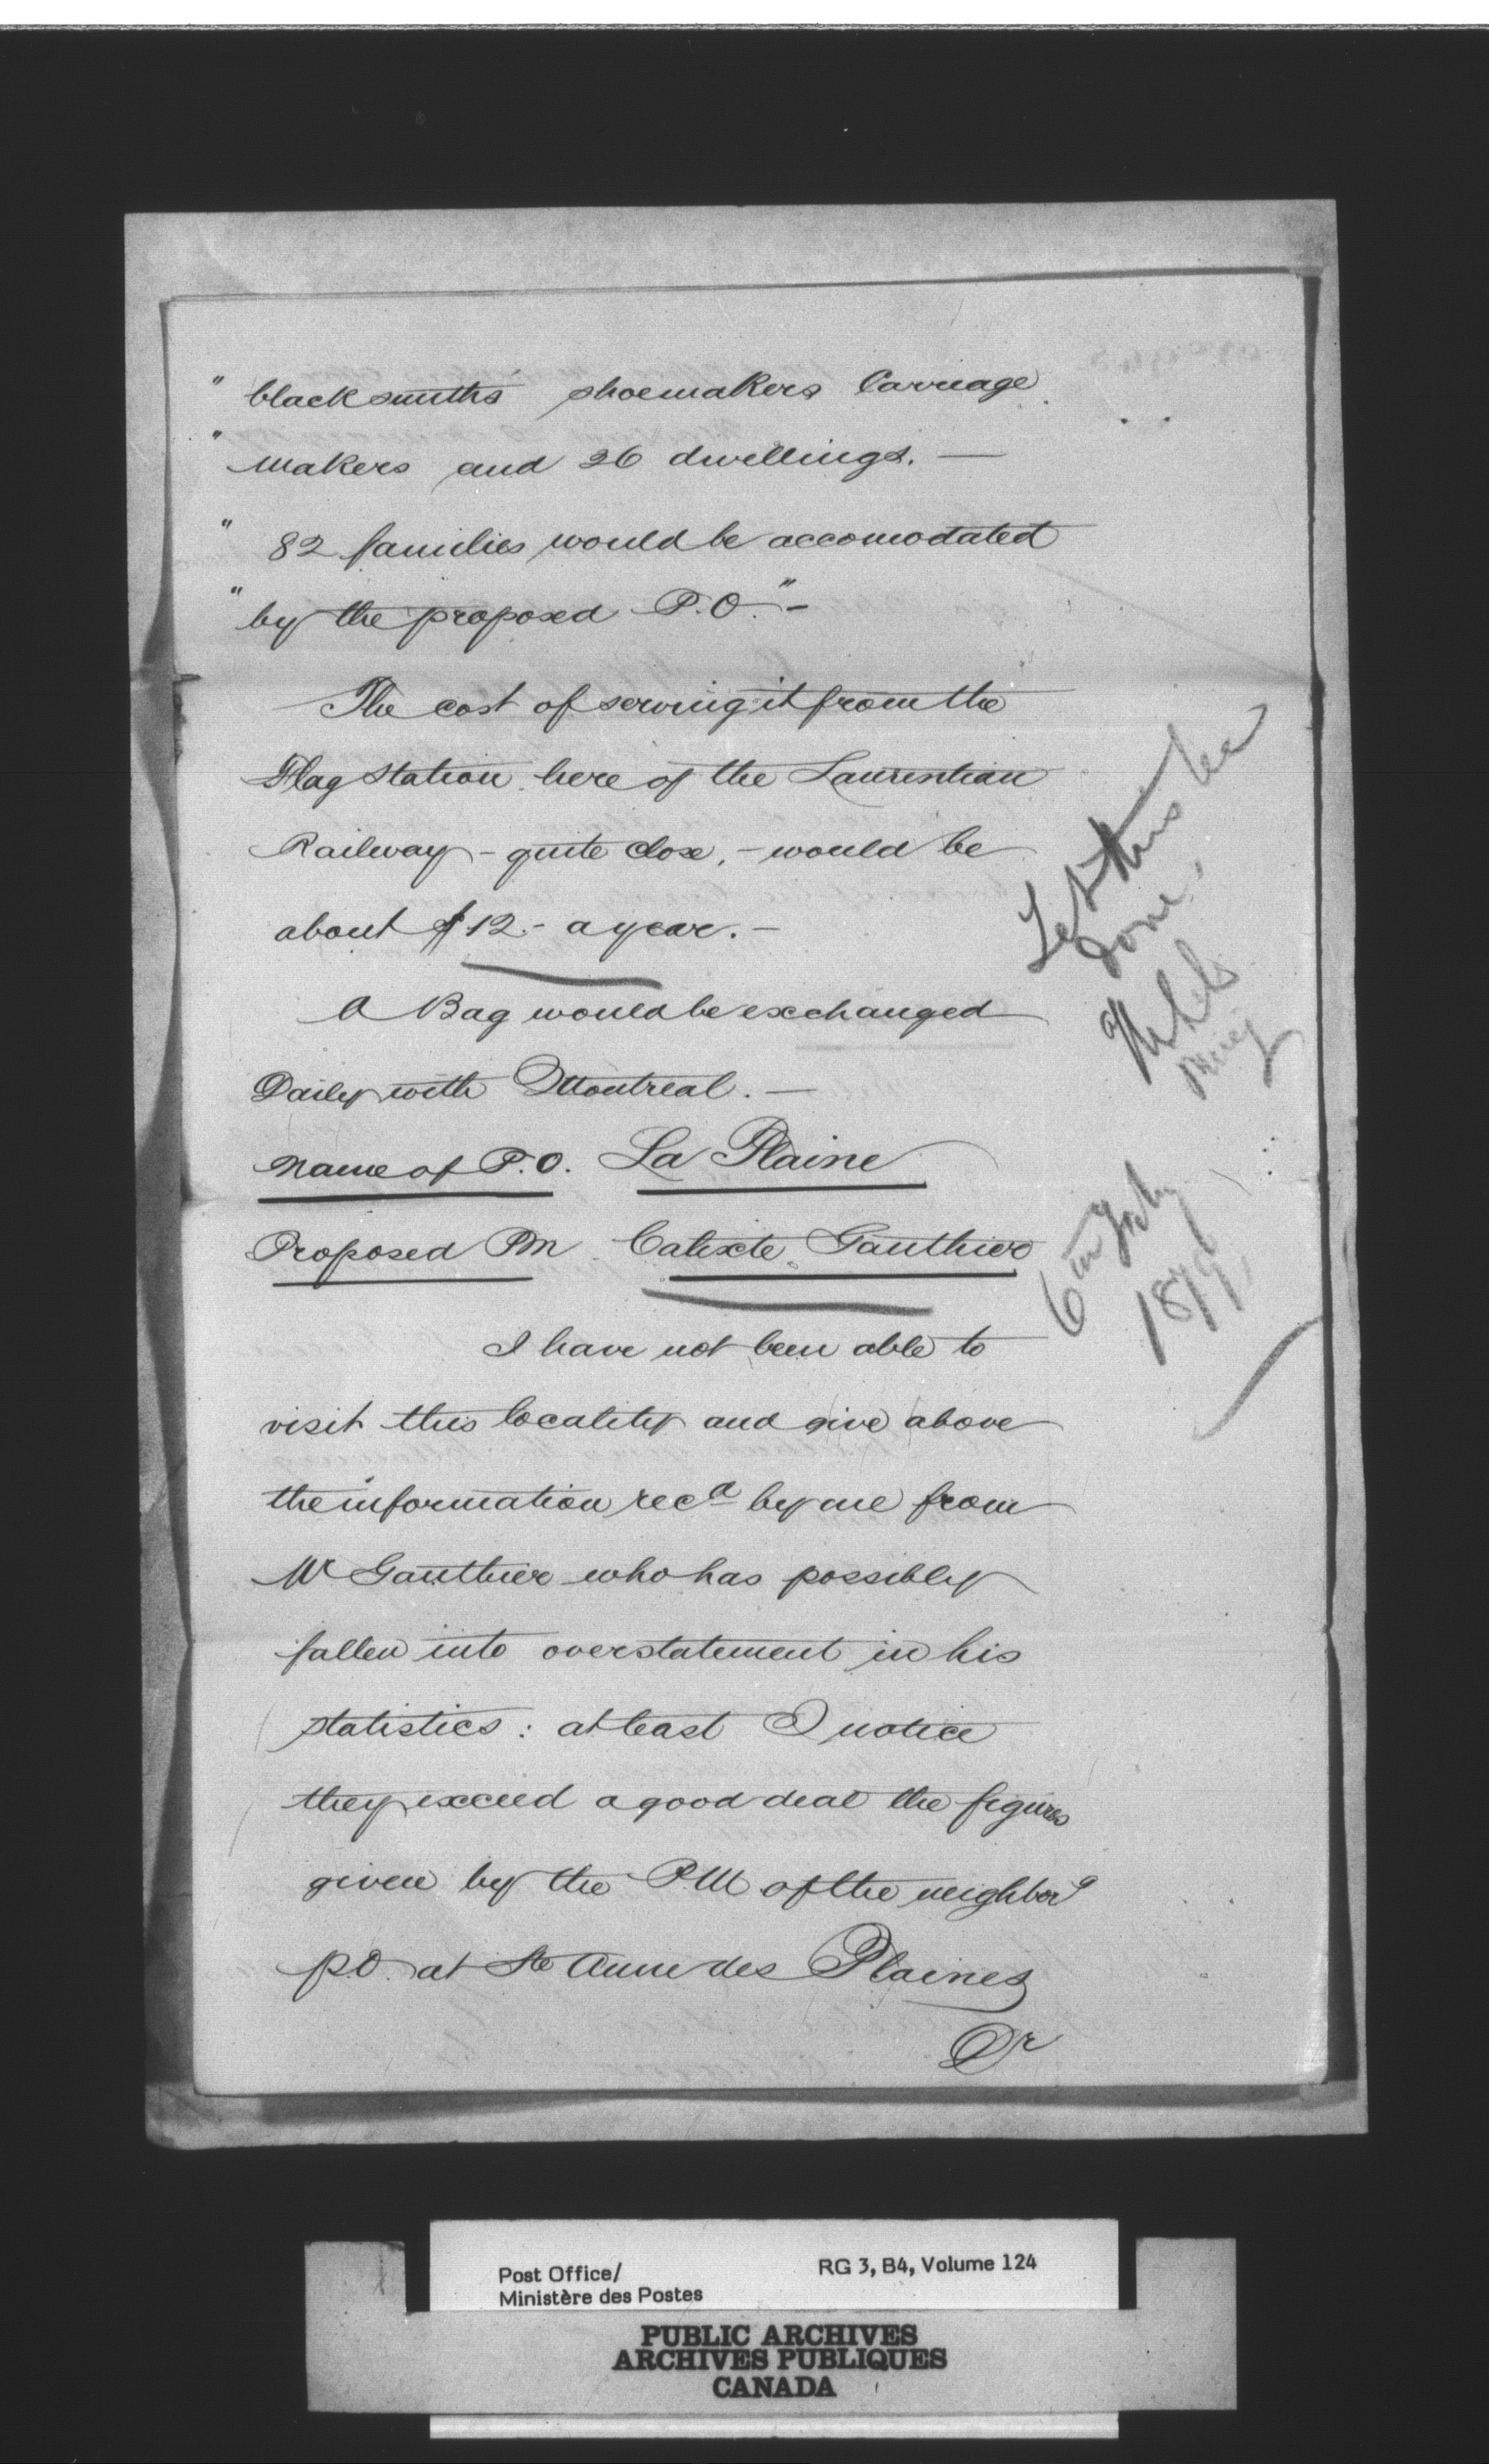 " blacksmiths shoemakers Carriage
" makers and 26 dwellings. —
" 82 families would be accomodated
" by the proposed P.O." -
The cost of serving it from the
Flag Station here of the Laurentian
Railway - quite close, - would be
about $12.- a year. -
A Bag would be exchanged
Daily with Montreal. —
Name of P.O. La Plaine
Proposed PM Calixte Gauthier
I have not been able to
visit this locality and give above
the information recd by me from
Mr Gauthier who has possibly
fallen into overstatement in his
statistics : at least I notice
they exceed a good deal the figures
given by the PM of the neighborg
P.O. at Ste Anne des Plaines
Dr
Let this be
done.
6th Feby
1879
Post Office/
Ministère des Postes
RG 3, B4, Volume 124
PUBLIC ARCHIVES
ARCHIVES PUBLIQUES
CANADA